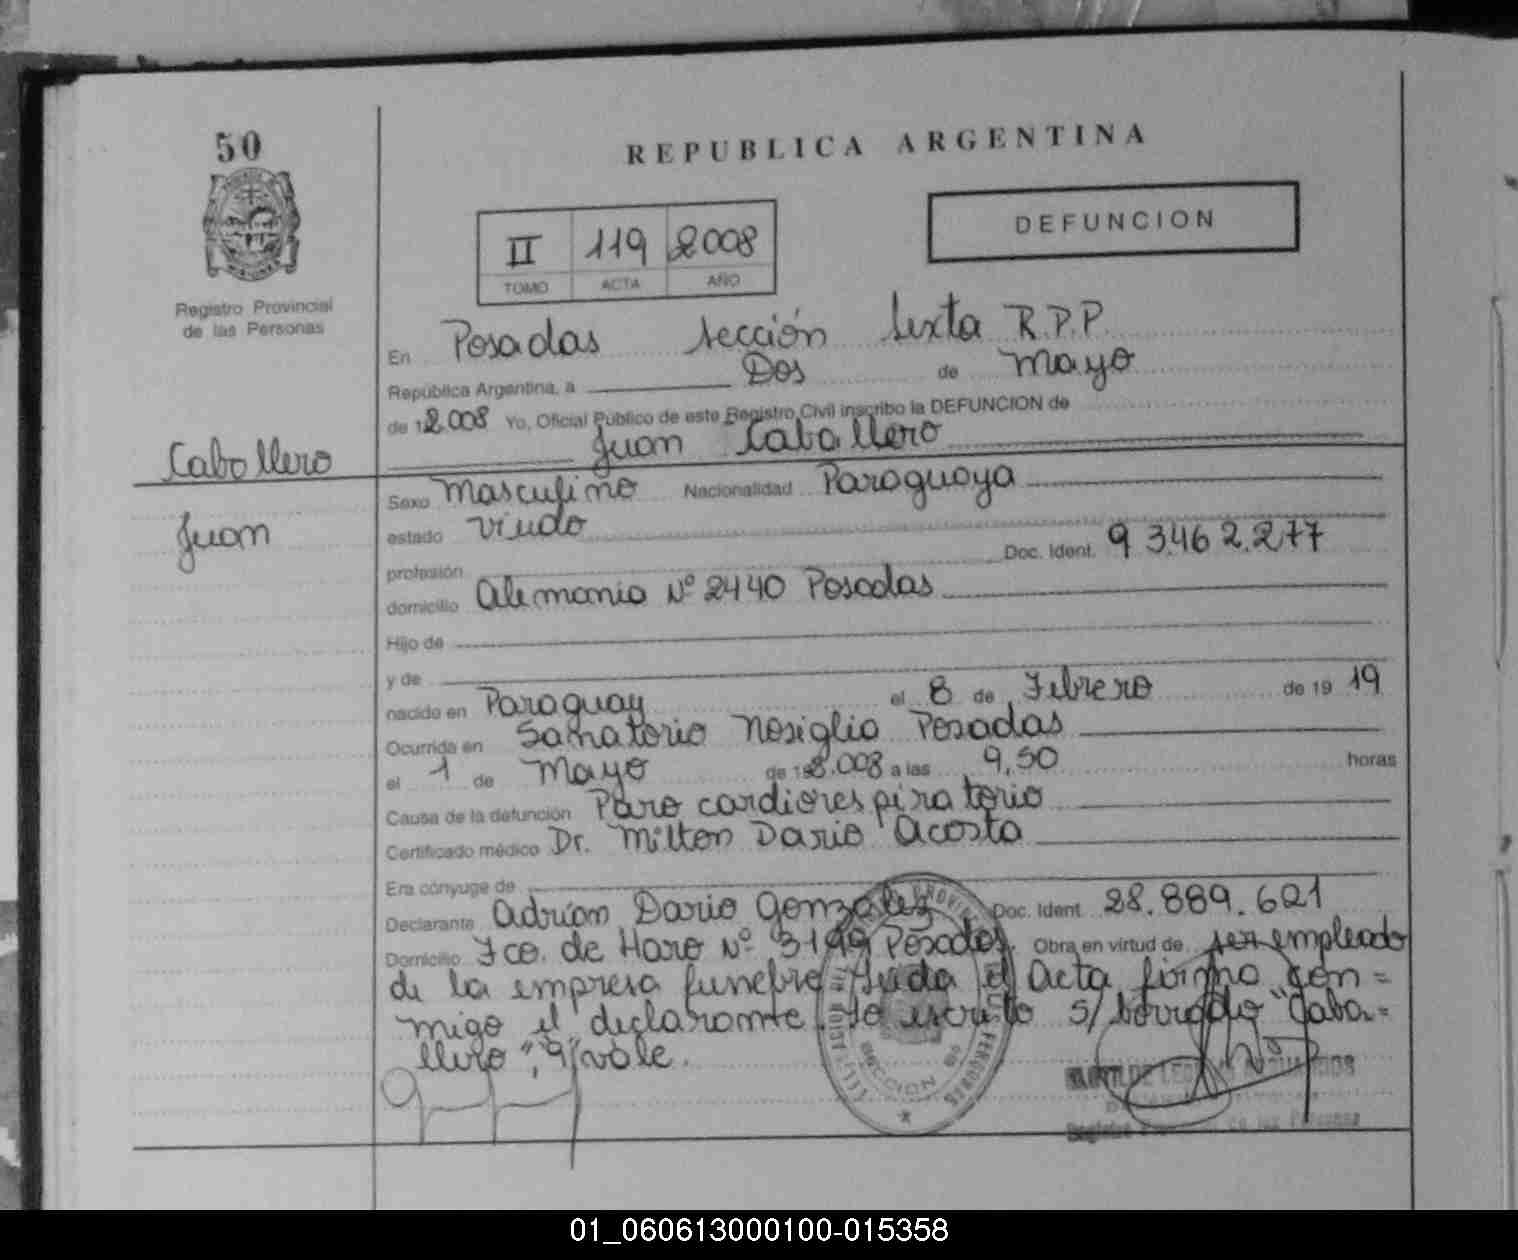 50
REPUBLICA ARGENTINA
DEFUNCION
II 119 2008
TOMO ACTA AÑO
Registro Provincial
de las Personas
En Posadas sección sexta R.P.P.
República Argentina, a Dos de Mayo
de 2.008 Yo, Oficial Público de este Registro Civil inscribo la DEFUNCION de
Juan Caballero
Caballero
Juan
Sexo Masculino Nacionalidad Paraguaya
estado Viudo
profesión Doc. Ident. 93.462.277
domicilio Alemania Nº 2440 Posadas
Hijo de
y de
nacido en Paraguay el 8 de Febrero de 19 19
Ocurrida en Sanatorio Nosiglia Posadas
el 1 de Mayo de 2.008 a las 9,50 horas
Causa de la defunción Paro cardiorespiratorio
Certificado médico Dr. Milton Dario Acosta
Era cónyuge de
Declarante Adrian Dario Gonzalez Doc. Ident. 28.889.621
Domicilio Fco. de Haro Nº 3199 Posadas. Obra en virtud de ser empleado
de la empresa funebre leida el Acta firma con=
migo el declarante. Lo escrito s/ borrado "Caba=
llero", "9" vale.
SECCION
Registro de las Personas
01_060613000100-015358